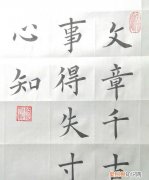 文章千古
事得失寸
心知